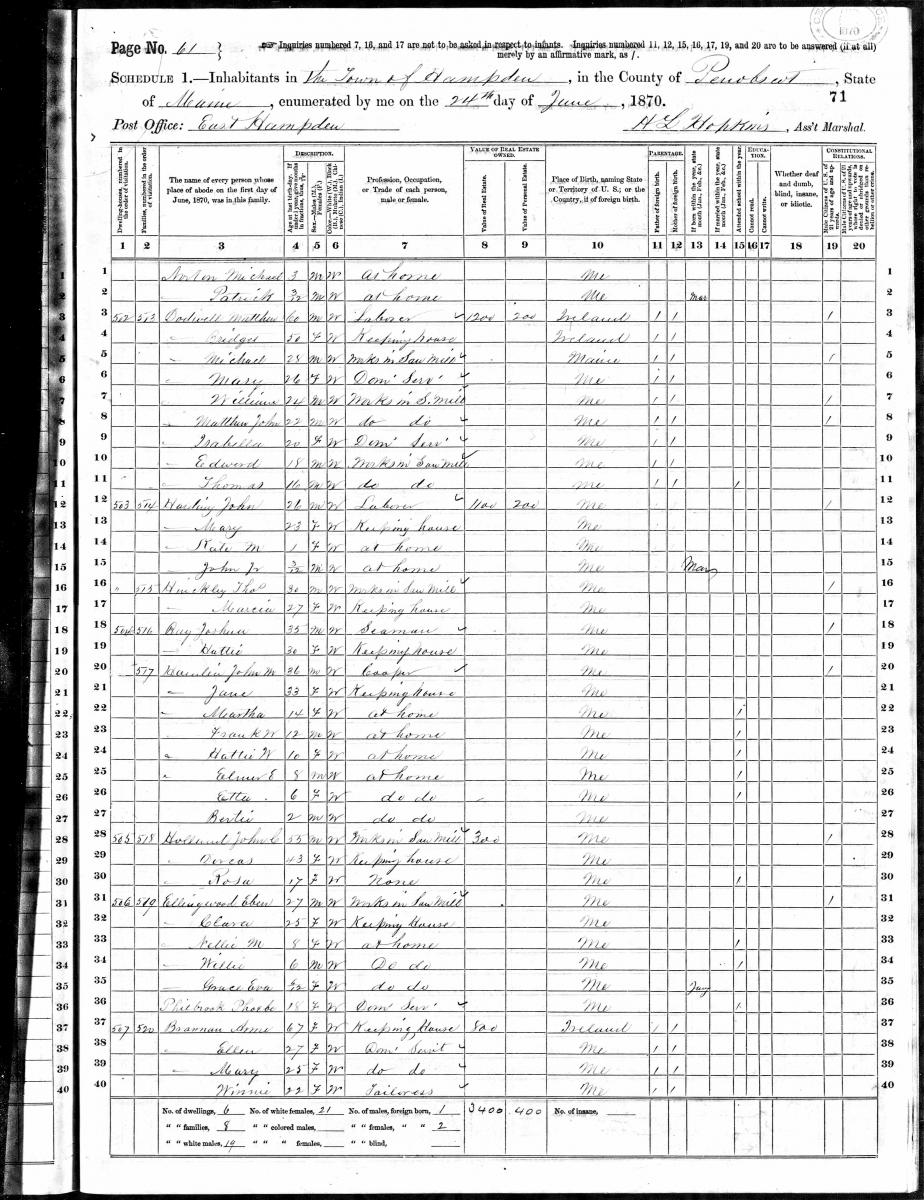 Page No. 61
Inquiries numbered 7, 16, and 17 are not to be asked in respect to infants. Inquiries numbered 11, 12, 15, 16, 17, 19, and 20 are to be answered (if at all)
merely by an affirmative mark, as /.
SCHEDULE 1.—Inhabitants in the Town of Hampden, in the County of Penobscot, State
of Maine, enumerated by me on the 24th day of June, 1870.
71
Post Office: East Hampden H L Hopkins, Ass't Marshal.
DESCRIPTION. VALUE OF REAL ESTATE OWNED. PARENTAGE. EDUCATION. CONSTITUTIONAL RELATIONS.
Dwelling-houses, numbered in the order of visitation.
Families, numbered in the order of visitation.
The name of every person whose place of abode on the first day of June, 1870, was in this family.
Sex.—Males (M.), Females (F.)
Profession, Occupation, or Trade of each person, male or female.
Value of Real Estate.
Value of Personal Estate.
Place of Birth, naming State or Territory of U. S.; or the Country, if of foreign birth.
Father of foreign birth.
Mother of foreign birth.
If born within the year, state month (Jan., Feb., &c.)
If married within the year, state month (Jan., Feb., &c.)
Attended school within the year.
Cannot read.
Cannot write.
Whether deaf and dumb, blind, insane, or idiotic.
1 2 3 4 5 6 7 8 9 10 11 12 13 14 15 16 17 18 19 20
1 Norton Michael 3 M W at home Me 1
2 Patrick 3/12 M W at home Me Mar 2
3 502 513 Matthew 60 M W Laborer 1200 200 Ireland / / / 3
4 Bridget 50 F W Keeping house Ireland / / 4
5 Michael 28 M W Works in Saw Mill Maine / / / 5
6 Mary 26 F W Dom' Serv' Me / / 6
7 William 24 M W Works in S. Mill Me / / / 7
8 Matthew John 22 M W do do Me / / / 8
9 Isabella 20 F W Dom' Serv' Me / / 9
10 Edward 18 M W Works in Saw Mill Me / / 10
11 Thomas 16 M W do do Me / / / 11
12 503 514 John 26 M W Laborer 1100 200 Me / 12
13 Mary 23 F W Keeping house Me 13
14 Kate M 1 F W at home Me 14
15 John Jr 3/12 M W at home Me Mar 15
16 " 515 Hinckley Thos 30 M W Works in Saw Mill Me / 16
17 Marcia 27 F W Keeping house Me 17
18 504 516 Ray Joshua 35 M W Seaman Me / 18
19 Hattie 30 F W Keeping house Me 19
20 517 Hamlin John M 36 M W Cooper Me / 20
21 Jane 33 F W Keeping house Me 21
22 Martha 14 F W at home Me / 22
23 Frank W 12 M W at home Me / 23
24 Hattie W 10 F W at home Me / 24
25 Elmer E 8 M W at home Me / 25
26 Etta 6 F W do do Me / 26
27 Bertie 2 M W do do Me 27
28 505 518 John C 55 M W Works in Saw Mill 300 Me / 28
29 Dorcas 43 F W Keeping house Me 29
30 Rosa 17 F W None Me / 30
31 506 519 Ellingwood Eben 27 M W Works in Saw Mill Me / 31
32 Clara 25 F W Keeping House Me 32
33 Nellie M 8 F W at home Me / 33
34 Willie 6 M W Do do Me / 34
35 Grace Eva F W do do Me Jany 35
36 Philbrook Phoebe 18 F W Dom' Serv' Me / 36
37 507 520 Brannan 67 F W Keeping House 800 Ireland / / 37
38 Ellen 27 F W Dom' Servt Me / / 38
39 Mary 25 F W do do Me / / 39
40 Winnie 22 F W Tailoress Me / / 40
No. of dwellings, 6 No. of white females, 21 No. of males, foreign born, 1 3400 400 No. of insane,
" " families, 8 " " colored males, " " females, " " 2
" " white males, 19 " " " females, " " blind,